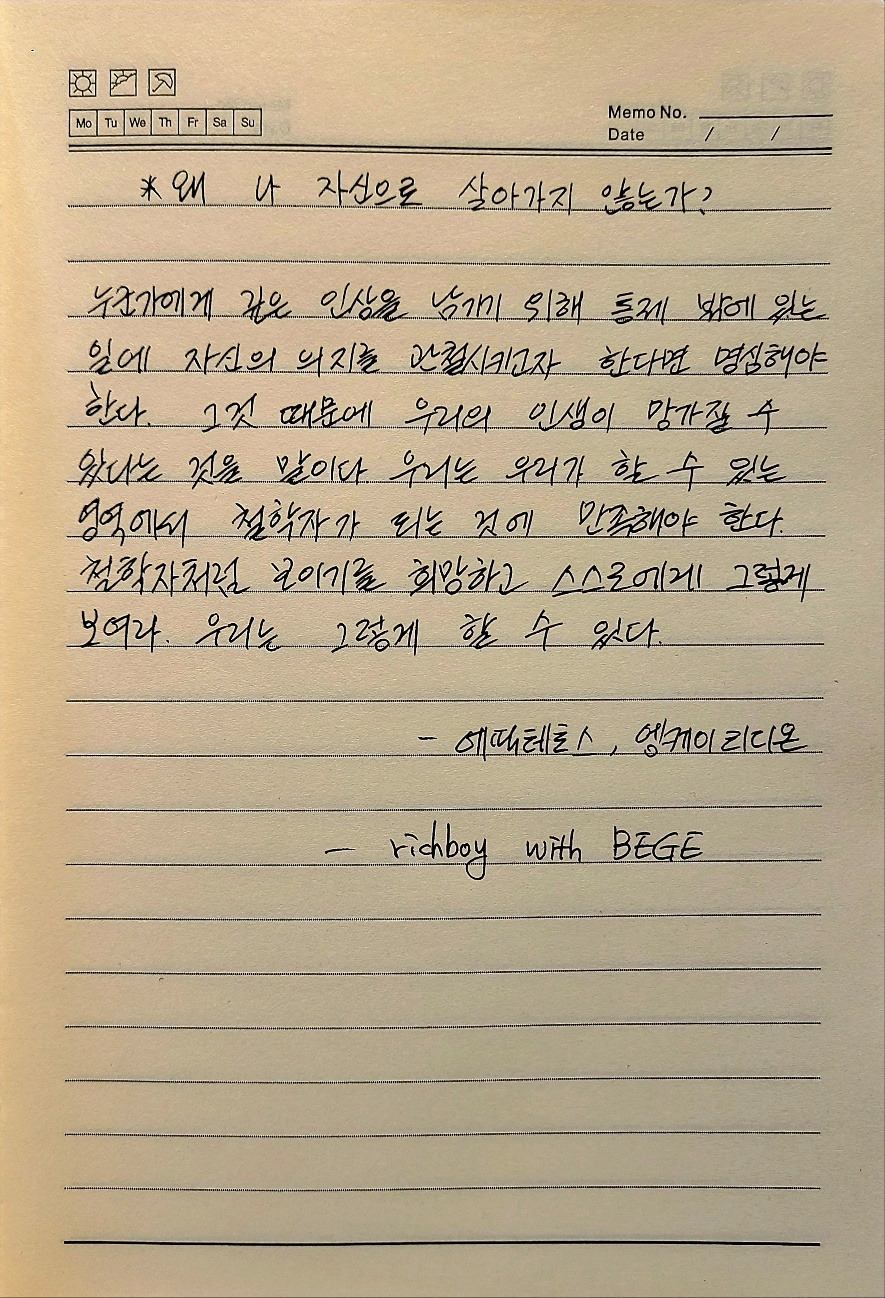 Mo Tu We Th Fr Sa Su
Memo No.
Date / /
* 왜 나 자신으로 살아가지 않는가?
누군가에게 깊은 인상을 남기기 위해 통제 밖에 있는
일에 자신의 의지를 관철시키고자 한다면 명심해야
한다. 그것 때문에 우리의 인생이 망가질 수
있다는 것을 말이다. 우리는 우리가 할 수 있는
영역에서 철학자가 되는 것에 만족해야 한다.
철학자처럼 보이기를 희망하고 스스로에게 그렇게
보여라. 우리는 그렇게 할 수 있다.
- 에픽테토스, 엥케이리디온
- richboy with BEGE